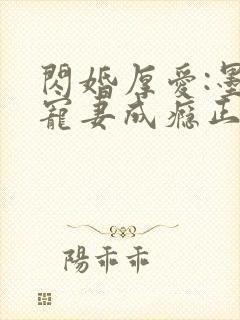 閃婚厚愛:墨
寵妻成癮正
陽乖乖